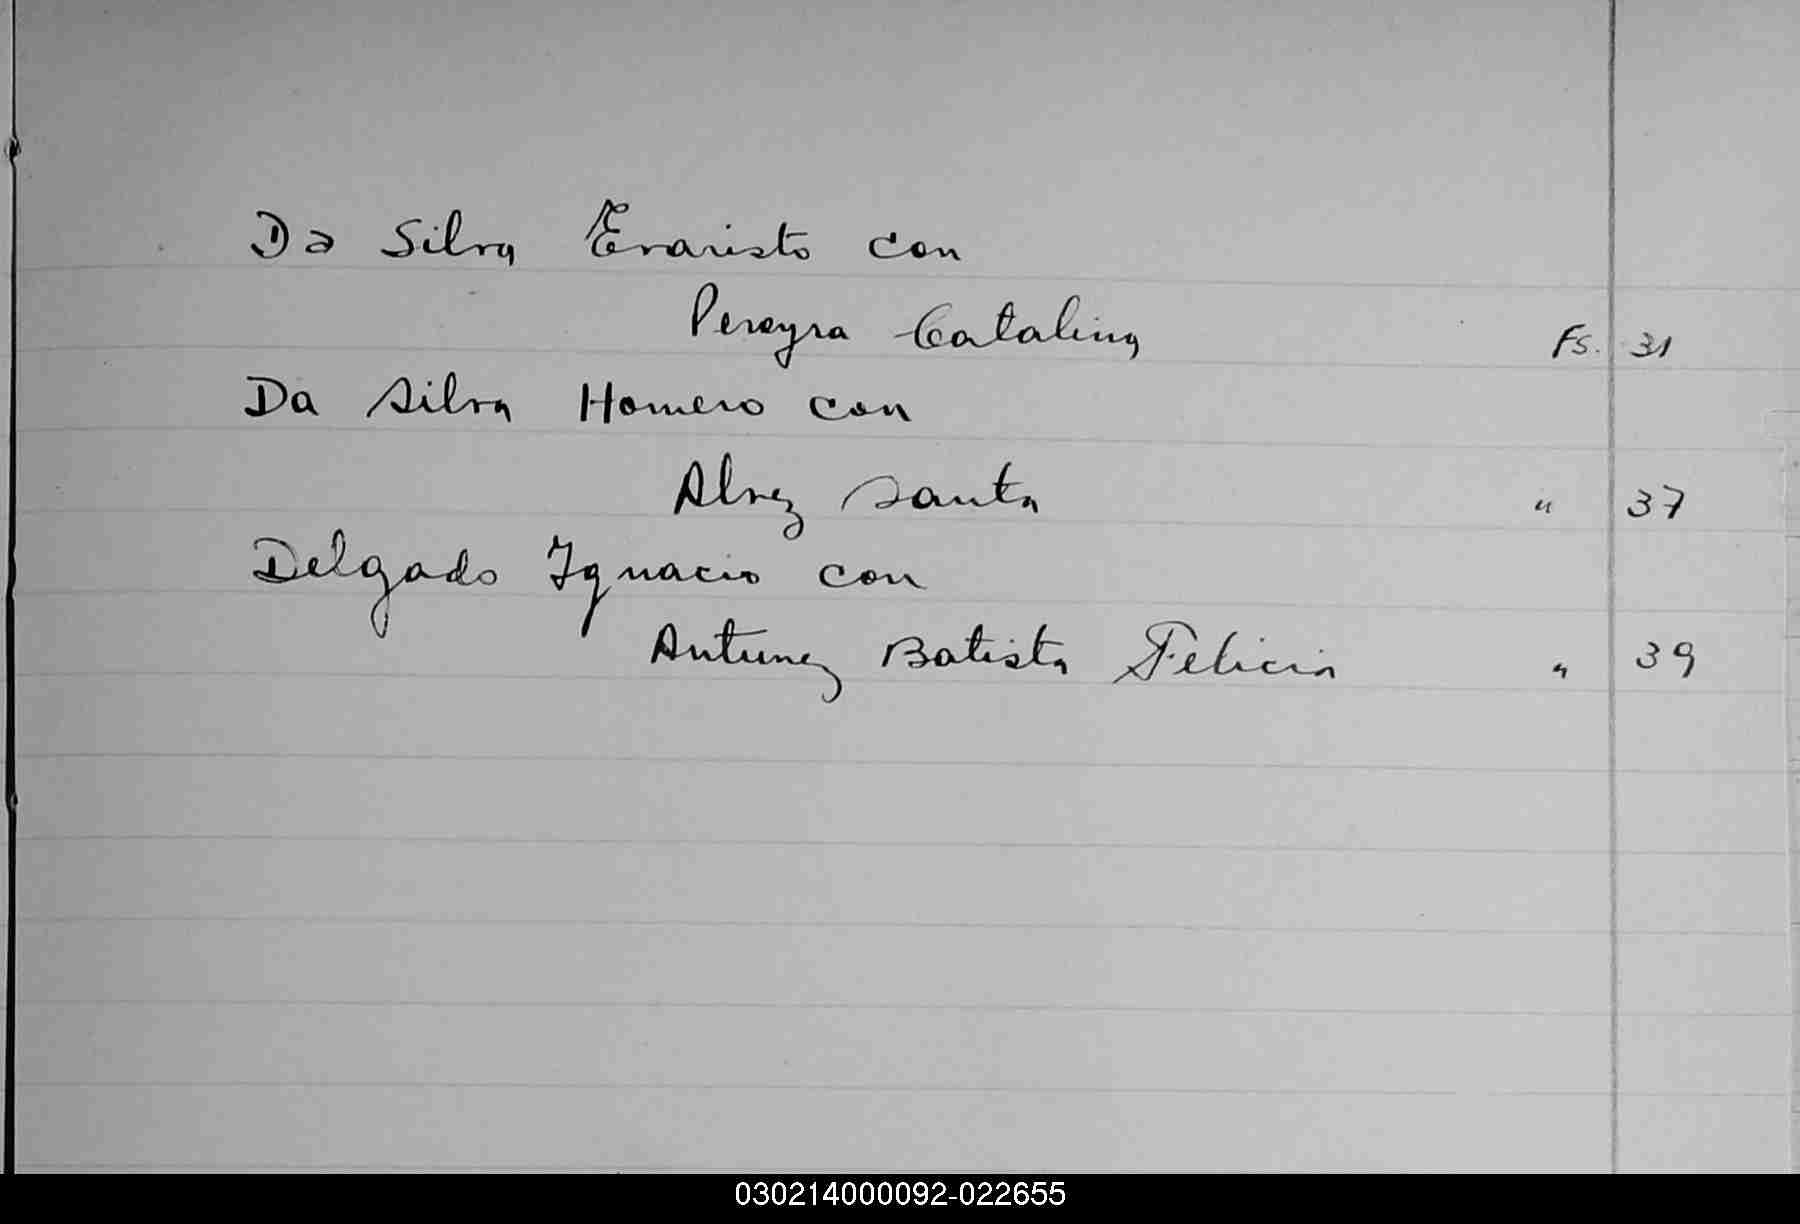 Da Silva Evaristo con
Pereyra Catalina Fs. 31
Da Silva Homero con
Alvez Santa " 37
Delgado Ignacio con
Antunez Batista Felicia " 39
030214000092-022655